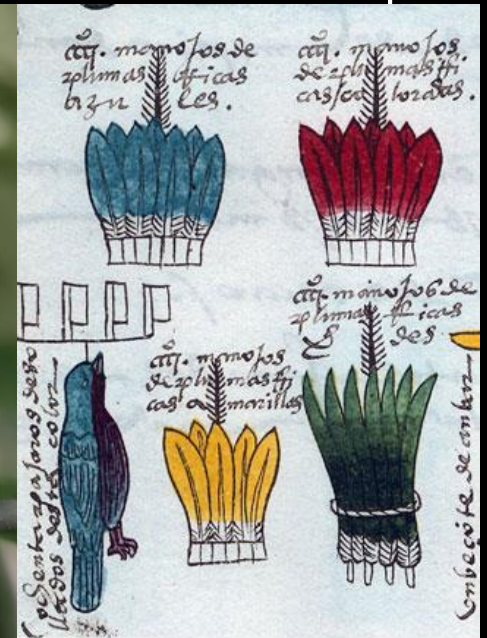 manojos de
plumas rricas
azules.
manojos
de plumas rri
cas coloradas.
manojos de
plumas rricas
des
manojos
de plumas rri
cas amarillas
ochenta pajaros deso
llados desta color
un beçote de ambar